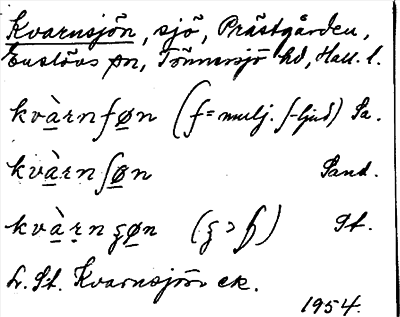 Kvarnsjön, sjö, Prästgården,
Enslövs sn, Tönnersjö hd, Hall. l.
kvàrnʃøn (ʃ = mulj. ʃ-ljud) Sa.
kvàrnʃøn Sand.
kvàrnʂøn (ʂ > ʃ) St.
L. St. Kvarnsjön ek.
1954.